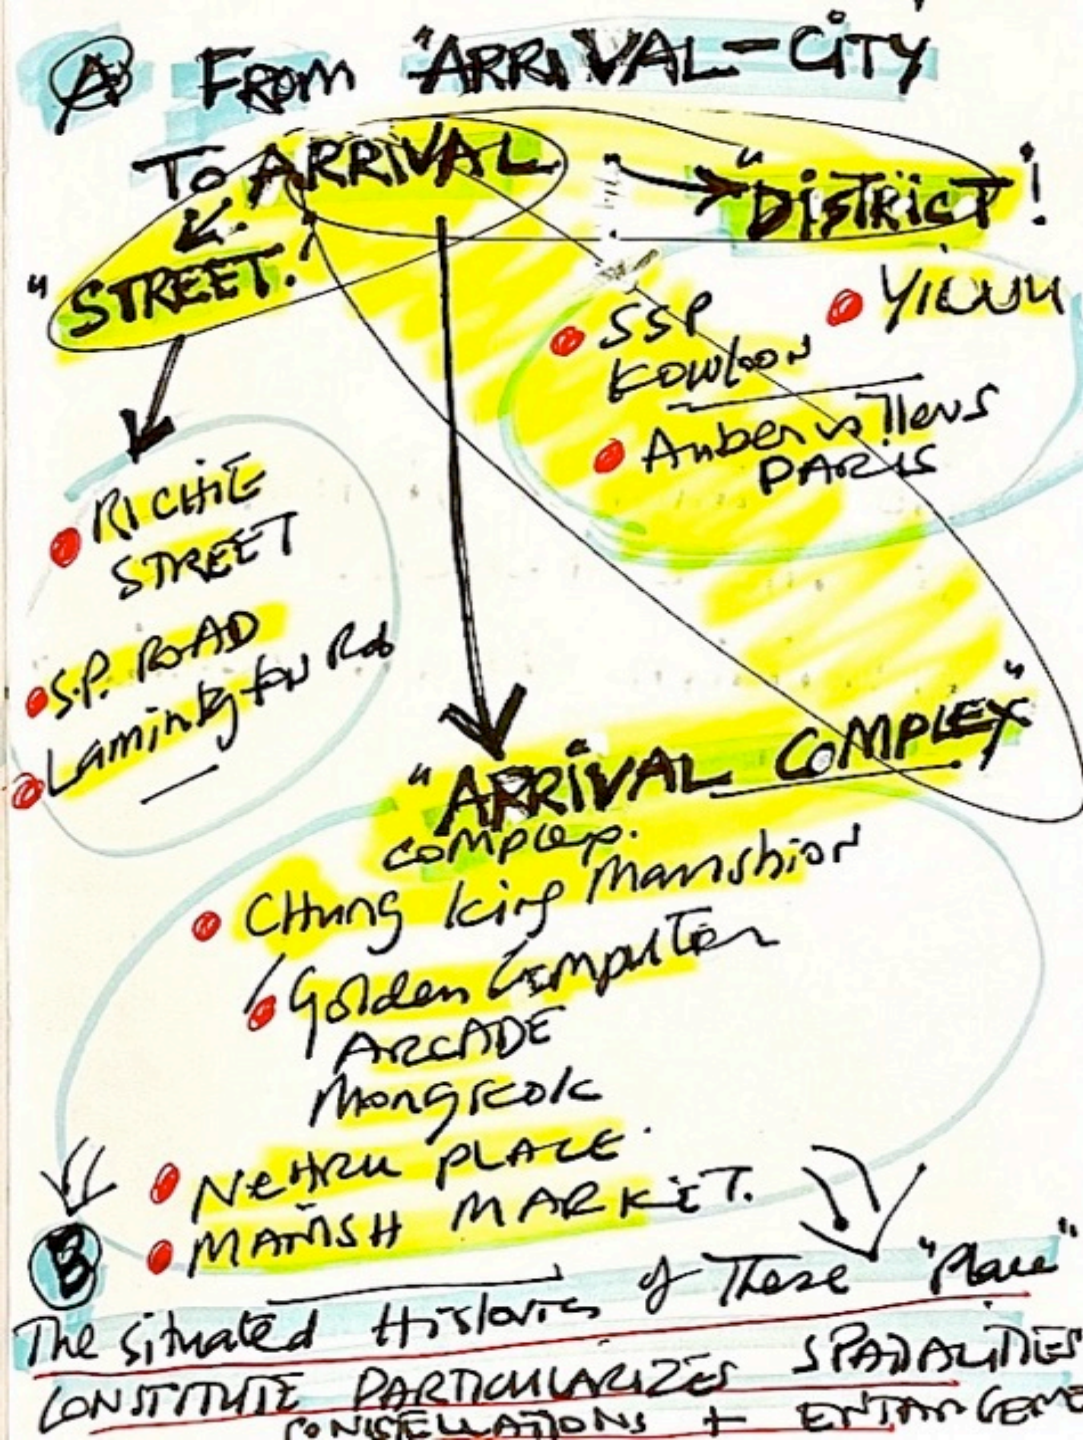 A From "ARRIVAL-CITY
To ARRIVAL
"DISTRICT"!
"STREET."
SSP
KOWLOON
YIWU
Aubervilliers
PARIS
RICHIE
STREET
S.P. ROAD
Lamington Rd
"ARRIVAL COMPLEX"
complex.
CHung King Manshion
Golden Computer
ARCADE
Mongkok
NEHRU PLACE.
MANISH MARKET.
B
The situated Histories of These "Place"
CONSTITUTE PARTICULARIZES SPATIALITIES
CONSTELLATIONS + ENTANGEME